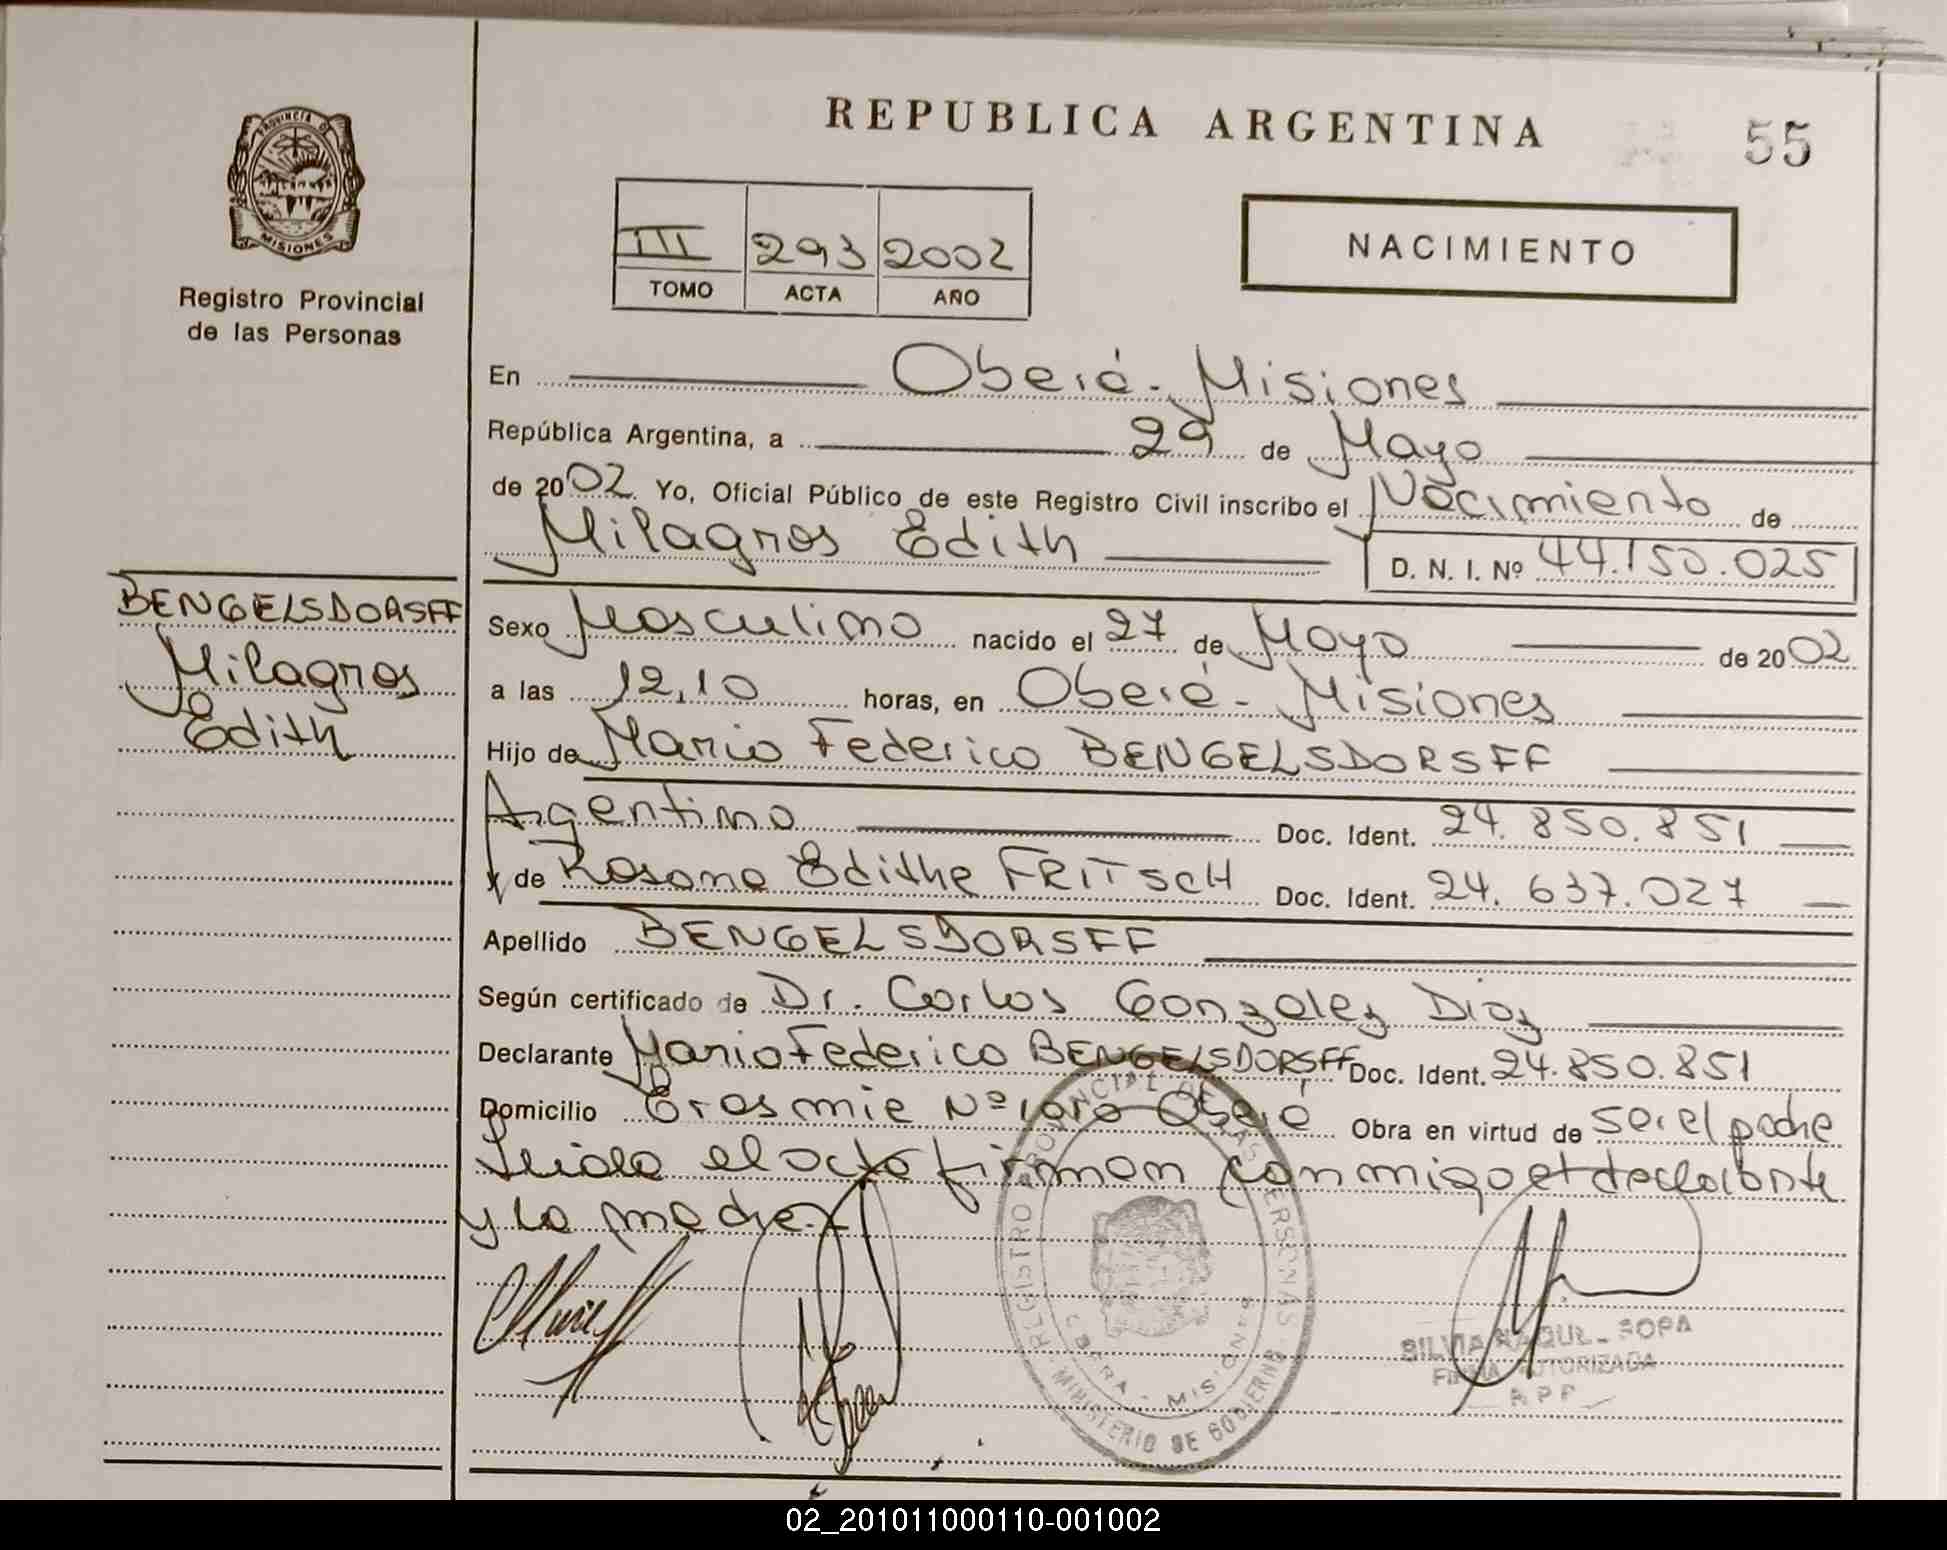 REPUBLICA ARGENTINA
55
PROVINCIA DE
MISIONES
Registro Provincial
de las Personas
III 293 2002
TOMO ACTA AÑO
NACIMIENTO
En Oberá - Misiones
República Argentina, a 29 de Mayo
de 2002. Yo, Oficial Público de este Registro Civil inscribo el Nacimiento de
Milagros Edith
D. N. I. Nº 44.150.025
BENGELSDORSFF
Milagros
Edith
Sexo Masculino nacido el 27 de Mayo de 2002
a las 12,10 horas, en Oberá - Misiones
Hijo de Mario Federico BENGELSDORSFF
Argentino Doc. Ident. 24.850.851
y de Rosana Edithe FRITSCH Doc. Ident. 24.637.027
Apellido BENGELSDORSFF
Según certificado de Dr. Carlos Gonzalez Diaz
Declarante Mario Federico BENGELSDORSFF Doc. Ident. 24.850.851
Domicilio Erasmie Nº Oberá Obra en virtud de ser el padre
Leida el acta firman conmigo el declarante
y la madre.
REGISTRO PROVINCIAL DE LAS PERSONAS
MINISTERIO DE GOBIERNO
OBERA - MISIONES
SILVIA RAQUEL SOPA
FIRMA AUTORIZADA
02_201011000110-001002